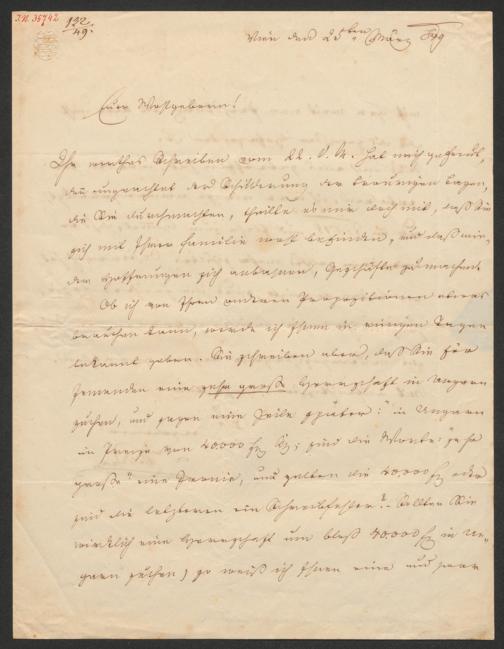 I.N. 35742
132/49.
Wien den 25ten März 849
Euer Wohlgeboren!
Ihr werthes Schreiben vom 22. d. M. hat mich gefreut,
da ungeachtet der Schilderung der traurigen Tagen,
die Sie durchmachten, theilte es mir doch mit, daß Sie
sich mit Ihrer Familie wohl befinden, und daß wie-
der Hoffnungen sich anbahnen, Geschäfte zu machen.
Ob ich von Ihren anderen Propositionen etwas
brauchen kann, werde ich Ihnen in einigen Tagen
bekannt geben. Sie schreiben aber, daß Sie für
Jemanden eine sehr große Herrschaft in Ungarn
suchen, und sagen eine Zeile später: "in Ungarn
im Preise von 40.000 f; sind die Worte: "sehr
große" eine Ironie, und gelten die 40.000 f oder
sind die letzteren ein Schreibfehler? – Sollten Sie
wirklich eine Herrschaft um bloß 40000 f in Un-
garn suchen, so weiß ich Ihnen eine und zwar